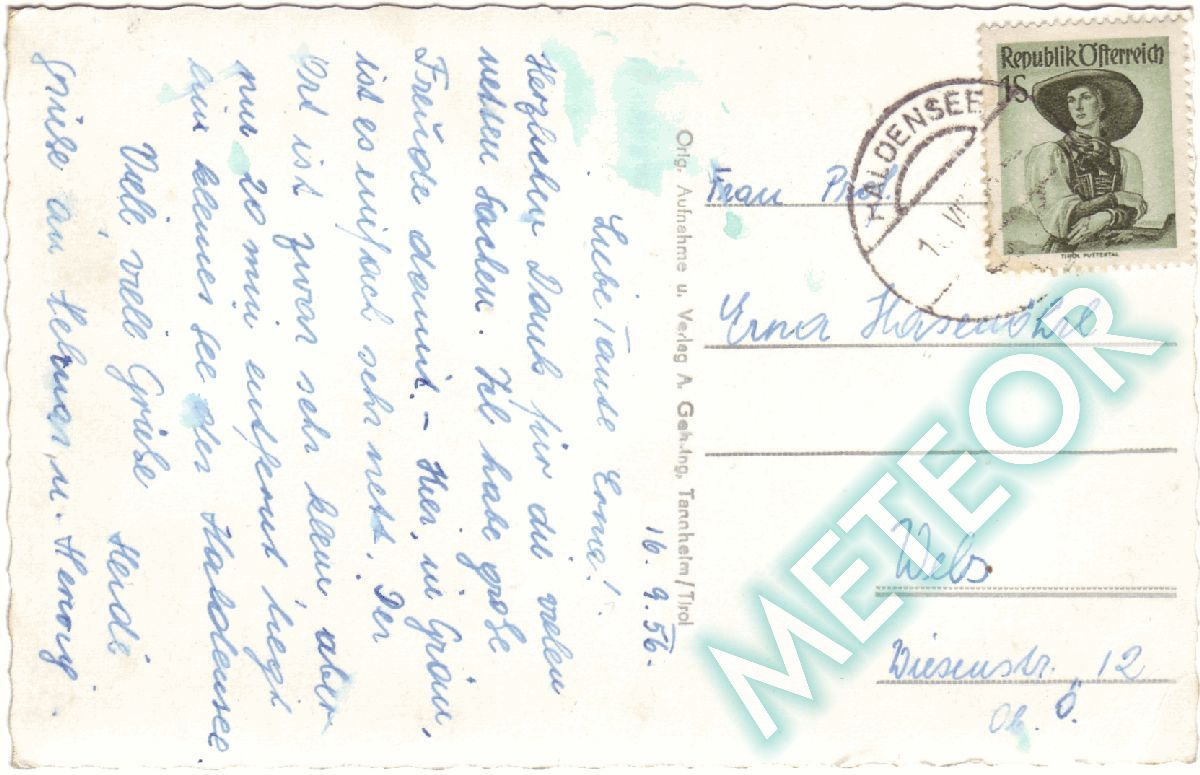 16.9.56.
Liebe Tante Erna!
Herzlichen Dank für die vielen
netten Sachen. Ich habe große
Freude damit. – Hier, in Grän,
ist es einfach sehr nett. Der
Ort ist zwar sehr klein aber
nur 20 min entfernt liegt
ein kleines see der Haldensee.
Viele viele Grüße Heide
grüße an Helmar, u. Hennig.
Orig. Aufnahme u. Verlag A. Gehring, Tannheim/Tirol
Republik Österreich
1S
TIROL PUSTERTAL
HALDENSEE
Frau Prof.
Erna Hasenöhrl
Wels
Wiesenstr. 12
Ob. Ö.
METEOR